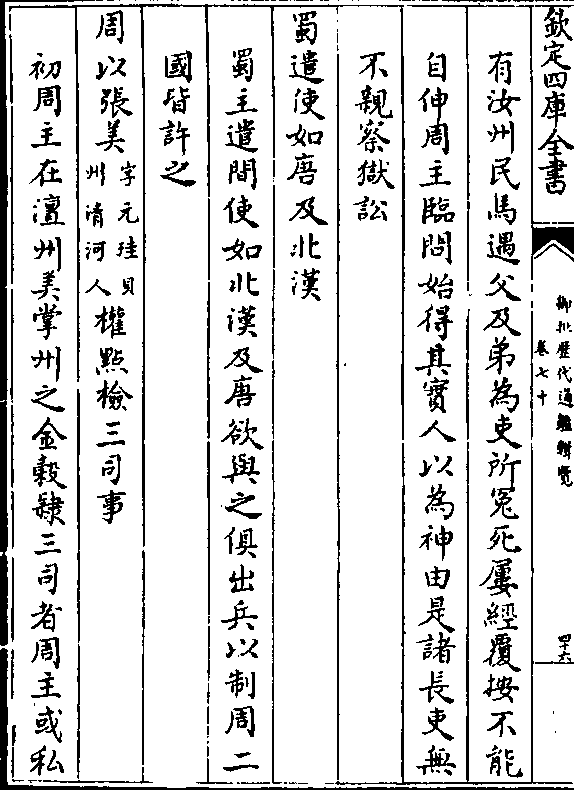 欽定四庫全書
御批歷代通鑑輯覽
卷七十
四十六
有汝州民馬遇父及弟為吏所冤死屢經覆按不能
自伸周主臨問始得其實人以為神由是諸長吏無
不親察獄訟
蜀遣使如唐及北漢
蜀主遣間使如北漢及唐欲與之俱出兵以制周二
國皆許之
周以張美字元珪貝州清河人權點檢三司事
初周主在澶州美掌州之金穀隷三司者周主或私